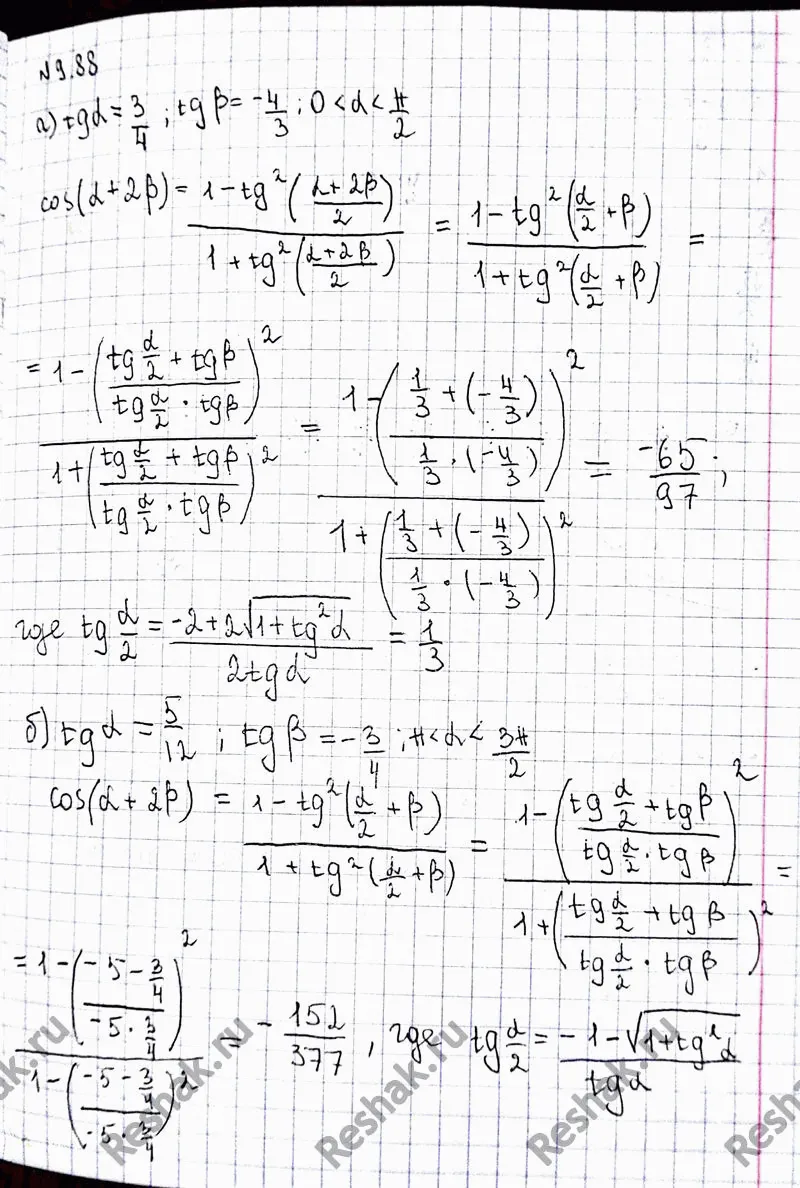 N 9.88
а) tgα = 3/4 ; tg β = -4/3 ; 0 < α < π/2
cos(α + 2β) = (1 - tg²((α + 2β)/2)) / (1 + tg²((α + 2β)/2)) = (1 - tg²(α/2 + β)) / (1 + tg²(α/2 + β)) =
= (1 - ((tg α/2 + tg β)/(tg α/2 · tg β))²) / (1 + ((tg α/2 + tg β)/(tg α/2 · tg β))²) = (1 - ((1/3 + (-4/3))/(1/3 · (-4/3)))²) / (1 + ((1/3 + (-4/3))/(1/3 · (-4/3)))²) = -65/97 ;
где tg α/2 = (-2 + 2√(1 + tg²α))/(2tg α) = 1/3
б) tg α = 5/12 ; tg β = -3/4 ; π < α < 3π/2
cos(α + 2β) = (1 - tg²(α/2 + β)) / (1 + tg²(α/2 + β)) = (1 - ((tg α/2 + tg β)/(tg α/2 · tg β))²) / (1 + ((tg α/2 + tg β)/(tg α/2 · tg β))²) =
= (1 - ((-5 - 3/4)/(-5 · 3/4))²) / (1 - ((-5 - 3/4)/(-5 · 3/4))²) = -152/377 , где tg α/2 = (-1 - √(1 + tg²α))/(tg α)
Reshak.ru
Reshak.ru
Reshak.ru
Reshak.ru